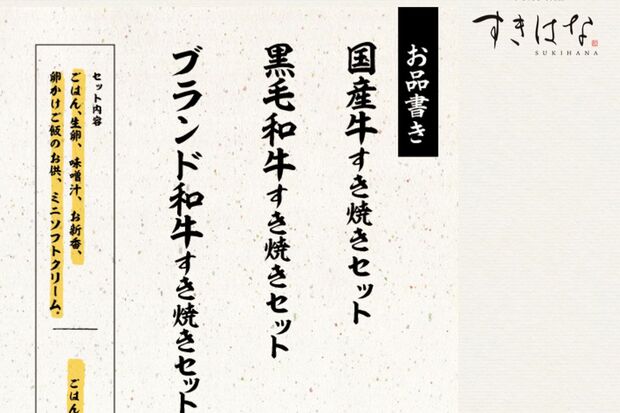 すきはな
SUKIHANA
お品書き
国産牛すき焼きセット
黒毛和牛すき焼きセット
ブランド和牛すき焼きセット
セット内容
ごはん、生卵、味噌汁、お新香、
卵かけご飯のお供、ミニソフトクリーム.
ごはん